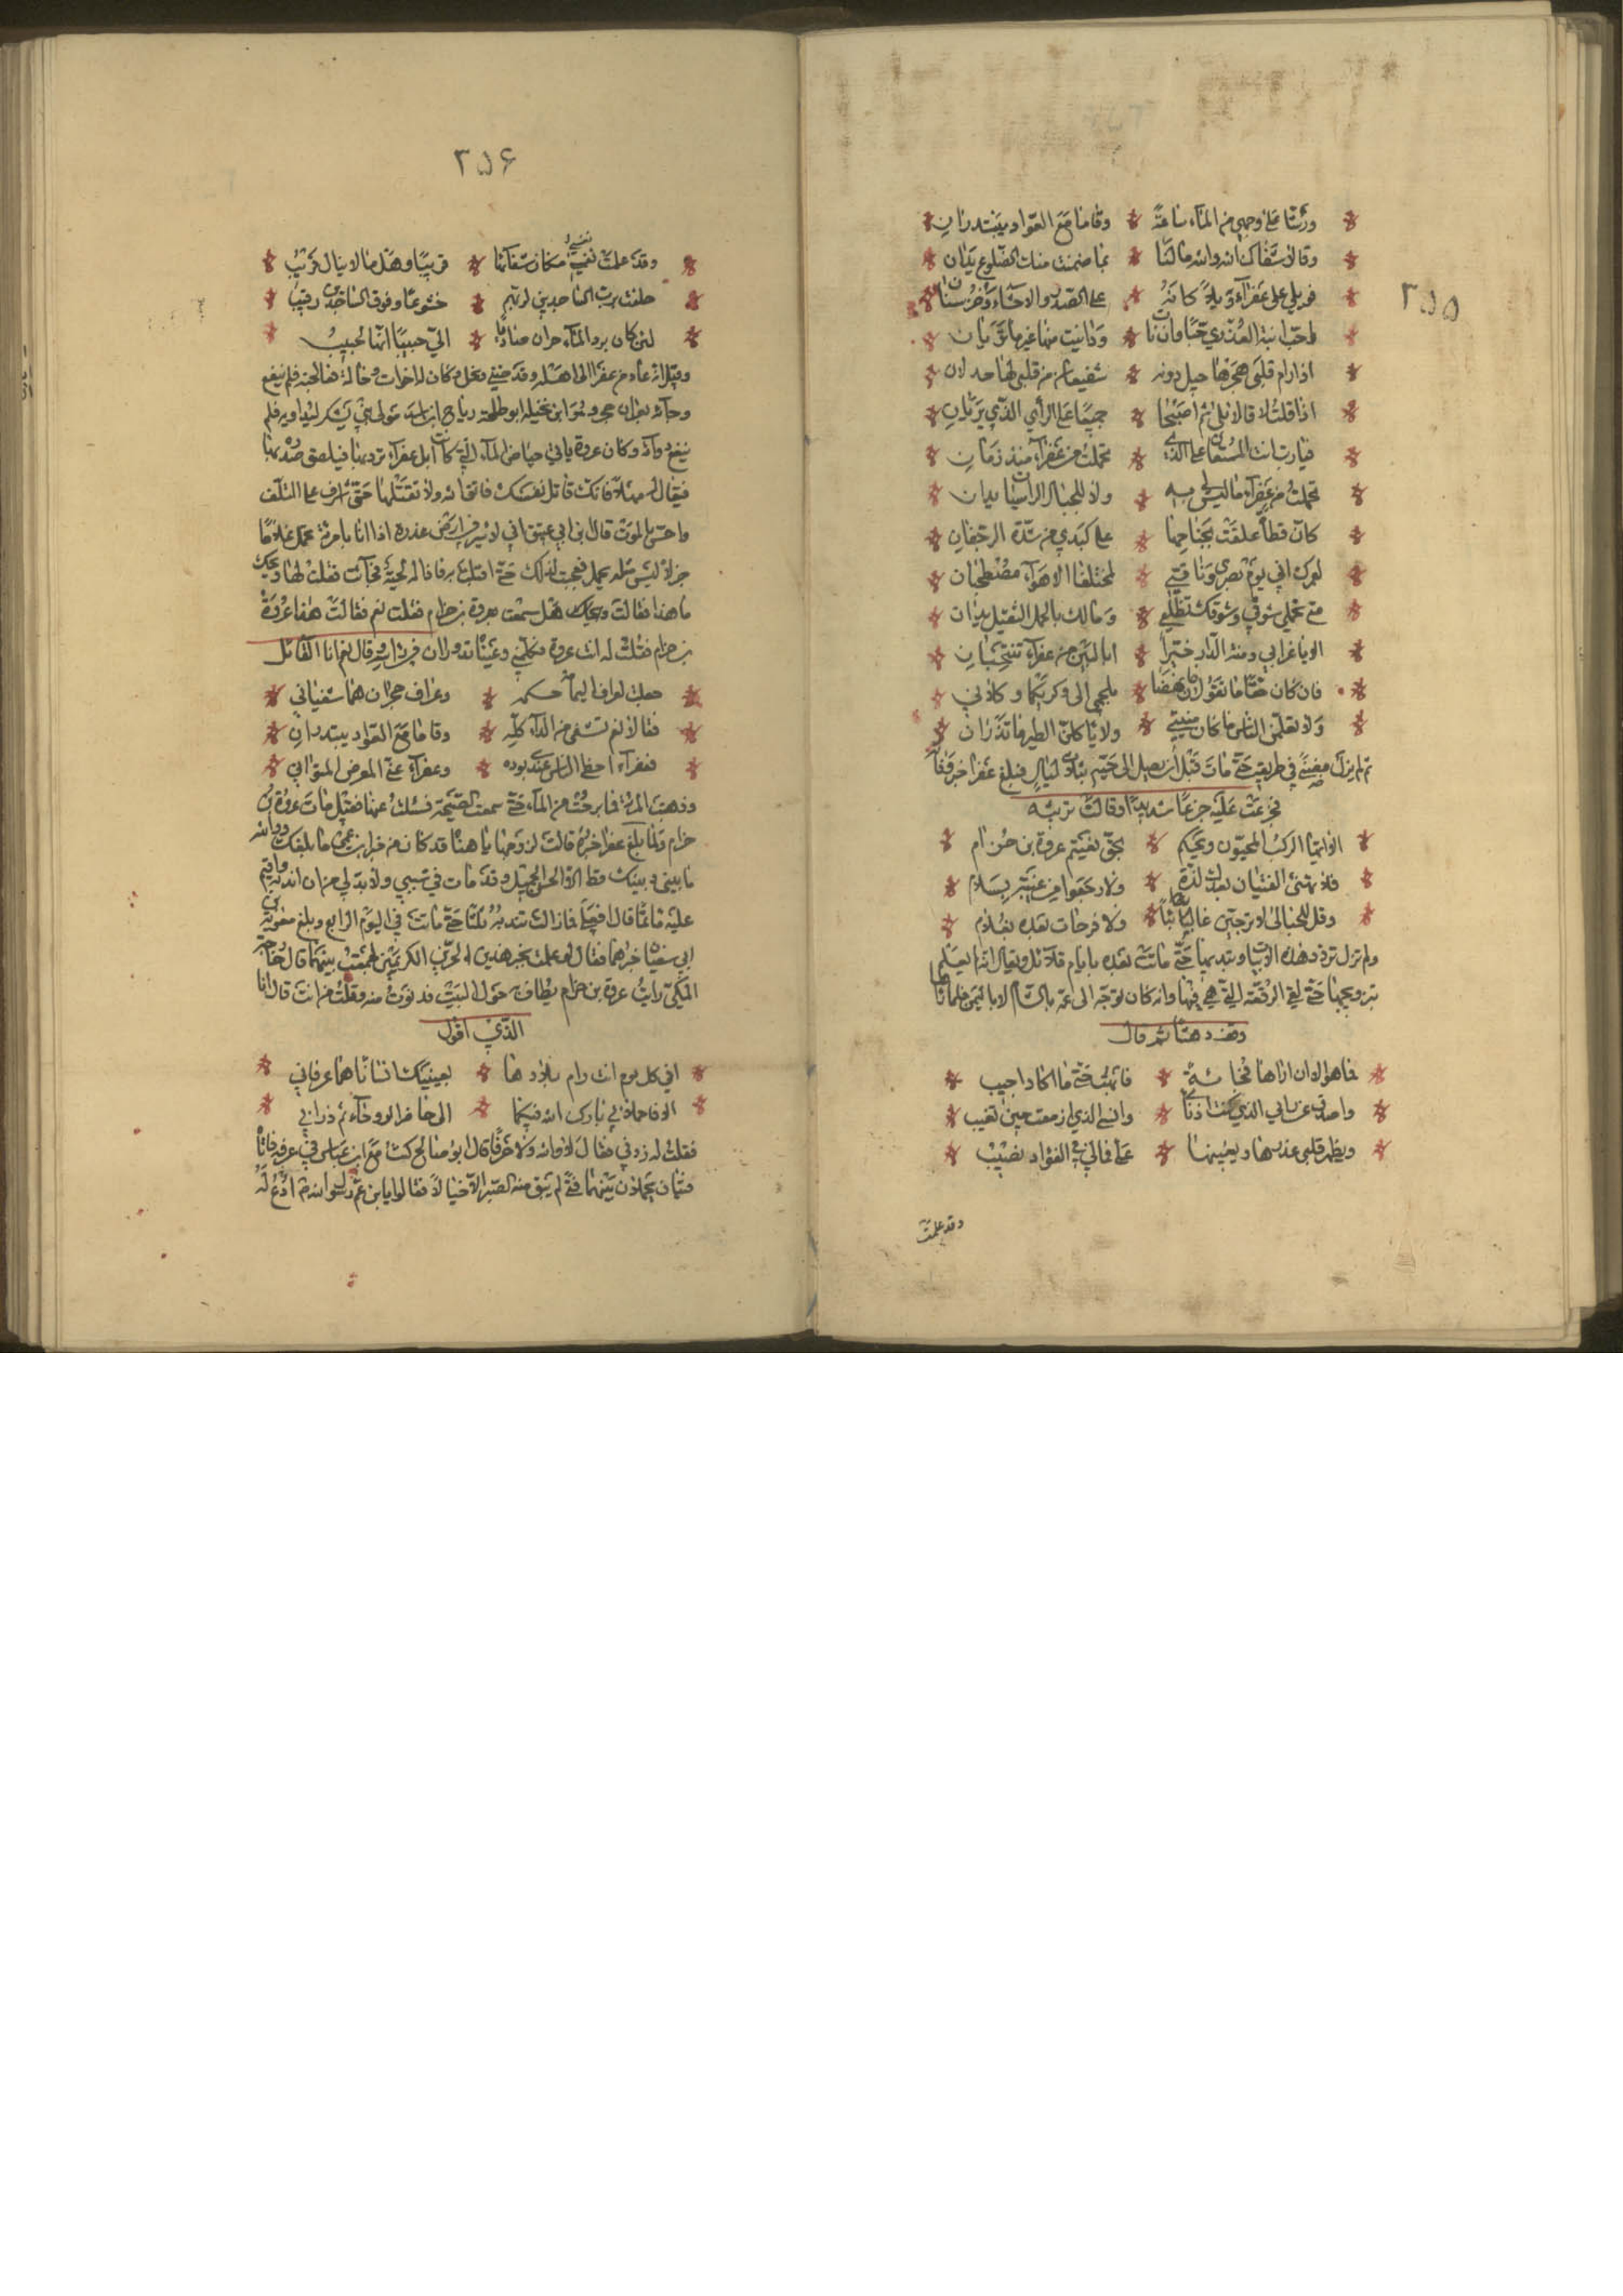 ٢٥٥
ورشا على وجهي من المآء ساعة * وقاما مع العوّاد يبتدران
وقالا شفاك الله والله مالنا * بما ضمنت منك الضلوع يدان
فويلي على عفرآء ويلاً كانه * على الصدر والاحشآء وخز سنان
احبّ ابنة العذري حبّا وان نات * ودانيت منها غيرما
اذا رام قلبي هجرها حيل دونه * شفيعان من قلبي لها جدلان
اذا قلت لا قالا بلى ثم اصبحا * جميعا على الرأي الذي يريان
فيارب انت المستعان على الذي * تحملت من عفرآء منذ زمان
تحملت من عفرآء ما ليس لي به * ولا للجبال الراسيات يدان
كان قطاة علقت بجناحها * على كبدي من شدة الخفقان
لعمرك اني يوم بصرى وناقتي * لمختلفا الاهوآء مصطحبان
متى تحملي شوقي وشوقك تظلعي * ومالك بالحمل الثقيل يدان
الا يا غرابي دمنة الدار خبّرا * ابالبين من عفرآء تنتحبان
فان كان حقا ما تقولان فانهضا * بلحمي الى وكريكما وكلاني
ولا يعلمن الناس ما كان ميتتي * ولا ياكلن الطير ما تذران
ثم لم يزل في طريقه حتى مات قبل أن يصل الى حيّه بثلاث ليال فبلغ عفرا خبر وفاته
فجزعت عليه جزعًا شديدًا وقالت ترثيه
الا ايها الركب المحبّون ويحكم * بحق نعيتم عروة بن حزام
فلا تهنئ الفتيان بعدك لذة * ولا رجعوا من غيبة بسلام
وقل للحبالى لا ترجين غائبا * ولا فرحات بعده بغلام
ولم تزل تردد هذه الابيات وتندبه بها حتى ماتت بعده بايام قلائل ويقال انه لم يعلم
بتزويجها حتى لقي الرفقة التي هي فيها وانه كان توجّه الى عمّ له بالشام لا باليمن فلما راها
وقف دهشًا ثم قال
فما هو الا ان اراها فجاءة * فابهت حتى ما اكاد اجيب
واصدف عن رايي الذي كنت * وانسى الذي ازمعت حين تغيب
ويظهر قلبي عذرها ويعينها * عليّ فمالي في الفؤاد نصيب
وقد علمت
٢٥۶
وقد علمت نفسي مكان شفآئها * قريبا وهل ما لا ينال قريب
حلفت برب الساجدين لربهم * خشوعًا وفوق الساجدين رقيب
لئن كان برد المآء حران صاديًا * اليّ حبيبًا انها لحبيب
وقيل انه عاد من عند عفرا الى اهله وقد ضنى ونحل وكان له اخوات وخالة فلم ينفع
وجآؤه ابو طلحة رباح بن راشد مولى بني يشكر ليداويه فلم
ينفع دوآؤه وكان عروة ياتي حياض المآء التي كانت ابل عفرآء تردها فيلصق صدره بها
فيقال له مهلاً فانك قاتل نفسك فاتق الله ولا تقتلها حتى اشرف على التلف
واحسّ بالموت قال ابن ابي عتيق اني لاسير في ارض عذره اذا انا بامرأة تحمل غلامًا
جزلاً ليس مثله يحمل فعجبت لذلك حتى اقبلت به فاذا له لحية فجآءت فقلت لها ويحك
ما هذا فقالت ويحك هل سمعت بعروة بن حزام فقلت نعم فقالت هذا عروة
بن حزام فقلت له انت عروة فكلمني وعيناه تدوران في راسه قال نعم انا القائل
جعلت لعراف اليمامة حكمه * وعراف حجران هما شفياني
فقالا نعم نشفى من الداء كله * وقاما مع العوّاد يبتدران
فعفرآء احظى الناس عندي مودة * وعفرآء عني المعرض المتواني
وذهبت المرأة فما برحت من المآء حتى سمعت الصيحة فسئلت عنها فقيل مات عروة بن
حزام ولما بلغ عفرا خبره قالت لزوجها يا هناه قد كان من خبر ابن عمي ما بلغك ووالله
ما بيني وبينك قط الا الحسن الجميل وقد مات في سببي ولا بد لي من ان اندبه واقيم
عليه مأتمًا قال افعلي فما زالت تندبه ثلثا حتى ماتت في اليوم الرابع وبلغ معوية بن
ابي سفيان خبرهما فقال لو علمت بخبر هذين الحرّين الكريمين لجمعت بينهما قال خارجة
المكيّ رايت عروة بن حزام يطاف به حول البيت فدنوت منه وقلت من انت قال انا
الذي اقول
افي كل يوم انت رام بلادها * بعينيك انسانا هما غرقان
الا فاحملاني بارك الله فيكما * الى حاضر الروحآء ثم ذراني
فقلت له زدني فقال لا والله ولا حرفًا قال ابو صالح كنت مع ابن عباس في عرفة فاتاه
فتيان يحملان بينهما فتى لم يبق منه الا خيالا فقالوا يا ابن عم رسول الله ادع له